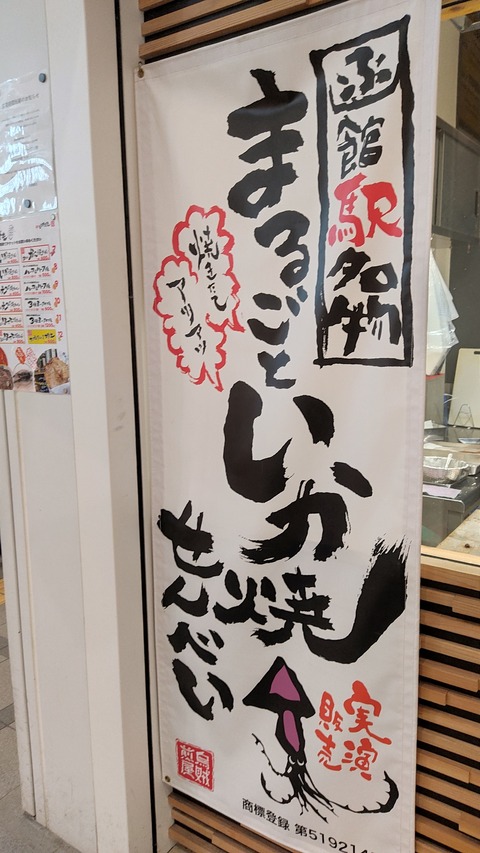 函館駅名物
まるごと
いか焼
せんべい
焼きたて
アツアツ
実演
販売
烏賊
煎屋
商標登録 第519214